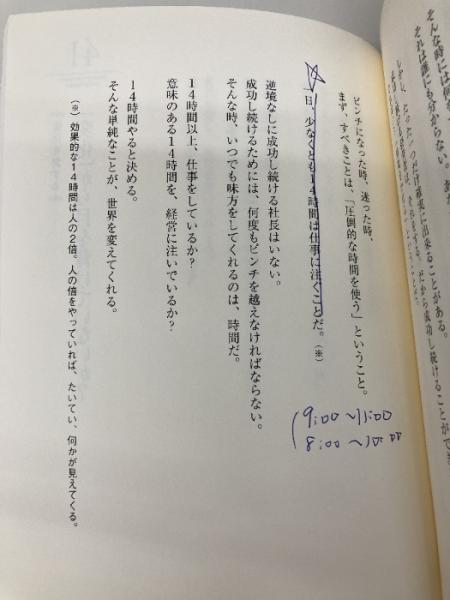 そんな時には何を
それは誰にも分からない。
たった一つだけ確実に出来ることがある。
だから成功し続けることができ
ピンチになった時、迷った時、
まず、すべきことは、「圧倒的な時間を使う」ということ。
1日、少なくとも14時間は仕事に注ぐことだ。(※)
逆境なしに成功し続ける社長はいない。
成功し続けるためには、何度もピンチを越えなければならない。
そんな時、いつでも味方をしてくれるのは、時間だ。
14時間以上、仕事をしているか?
意味のある14時間を、経営に注いでいるか?
14時間やると決める。
そんな単純なことが、世界を変えてくれる。
(※) 効果的な14時間は人の2倍。人の倍をやっていれば、たいてい、何かが見えてくる。
9:00~11:00
8:00~10:00